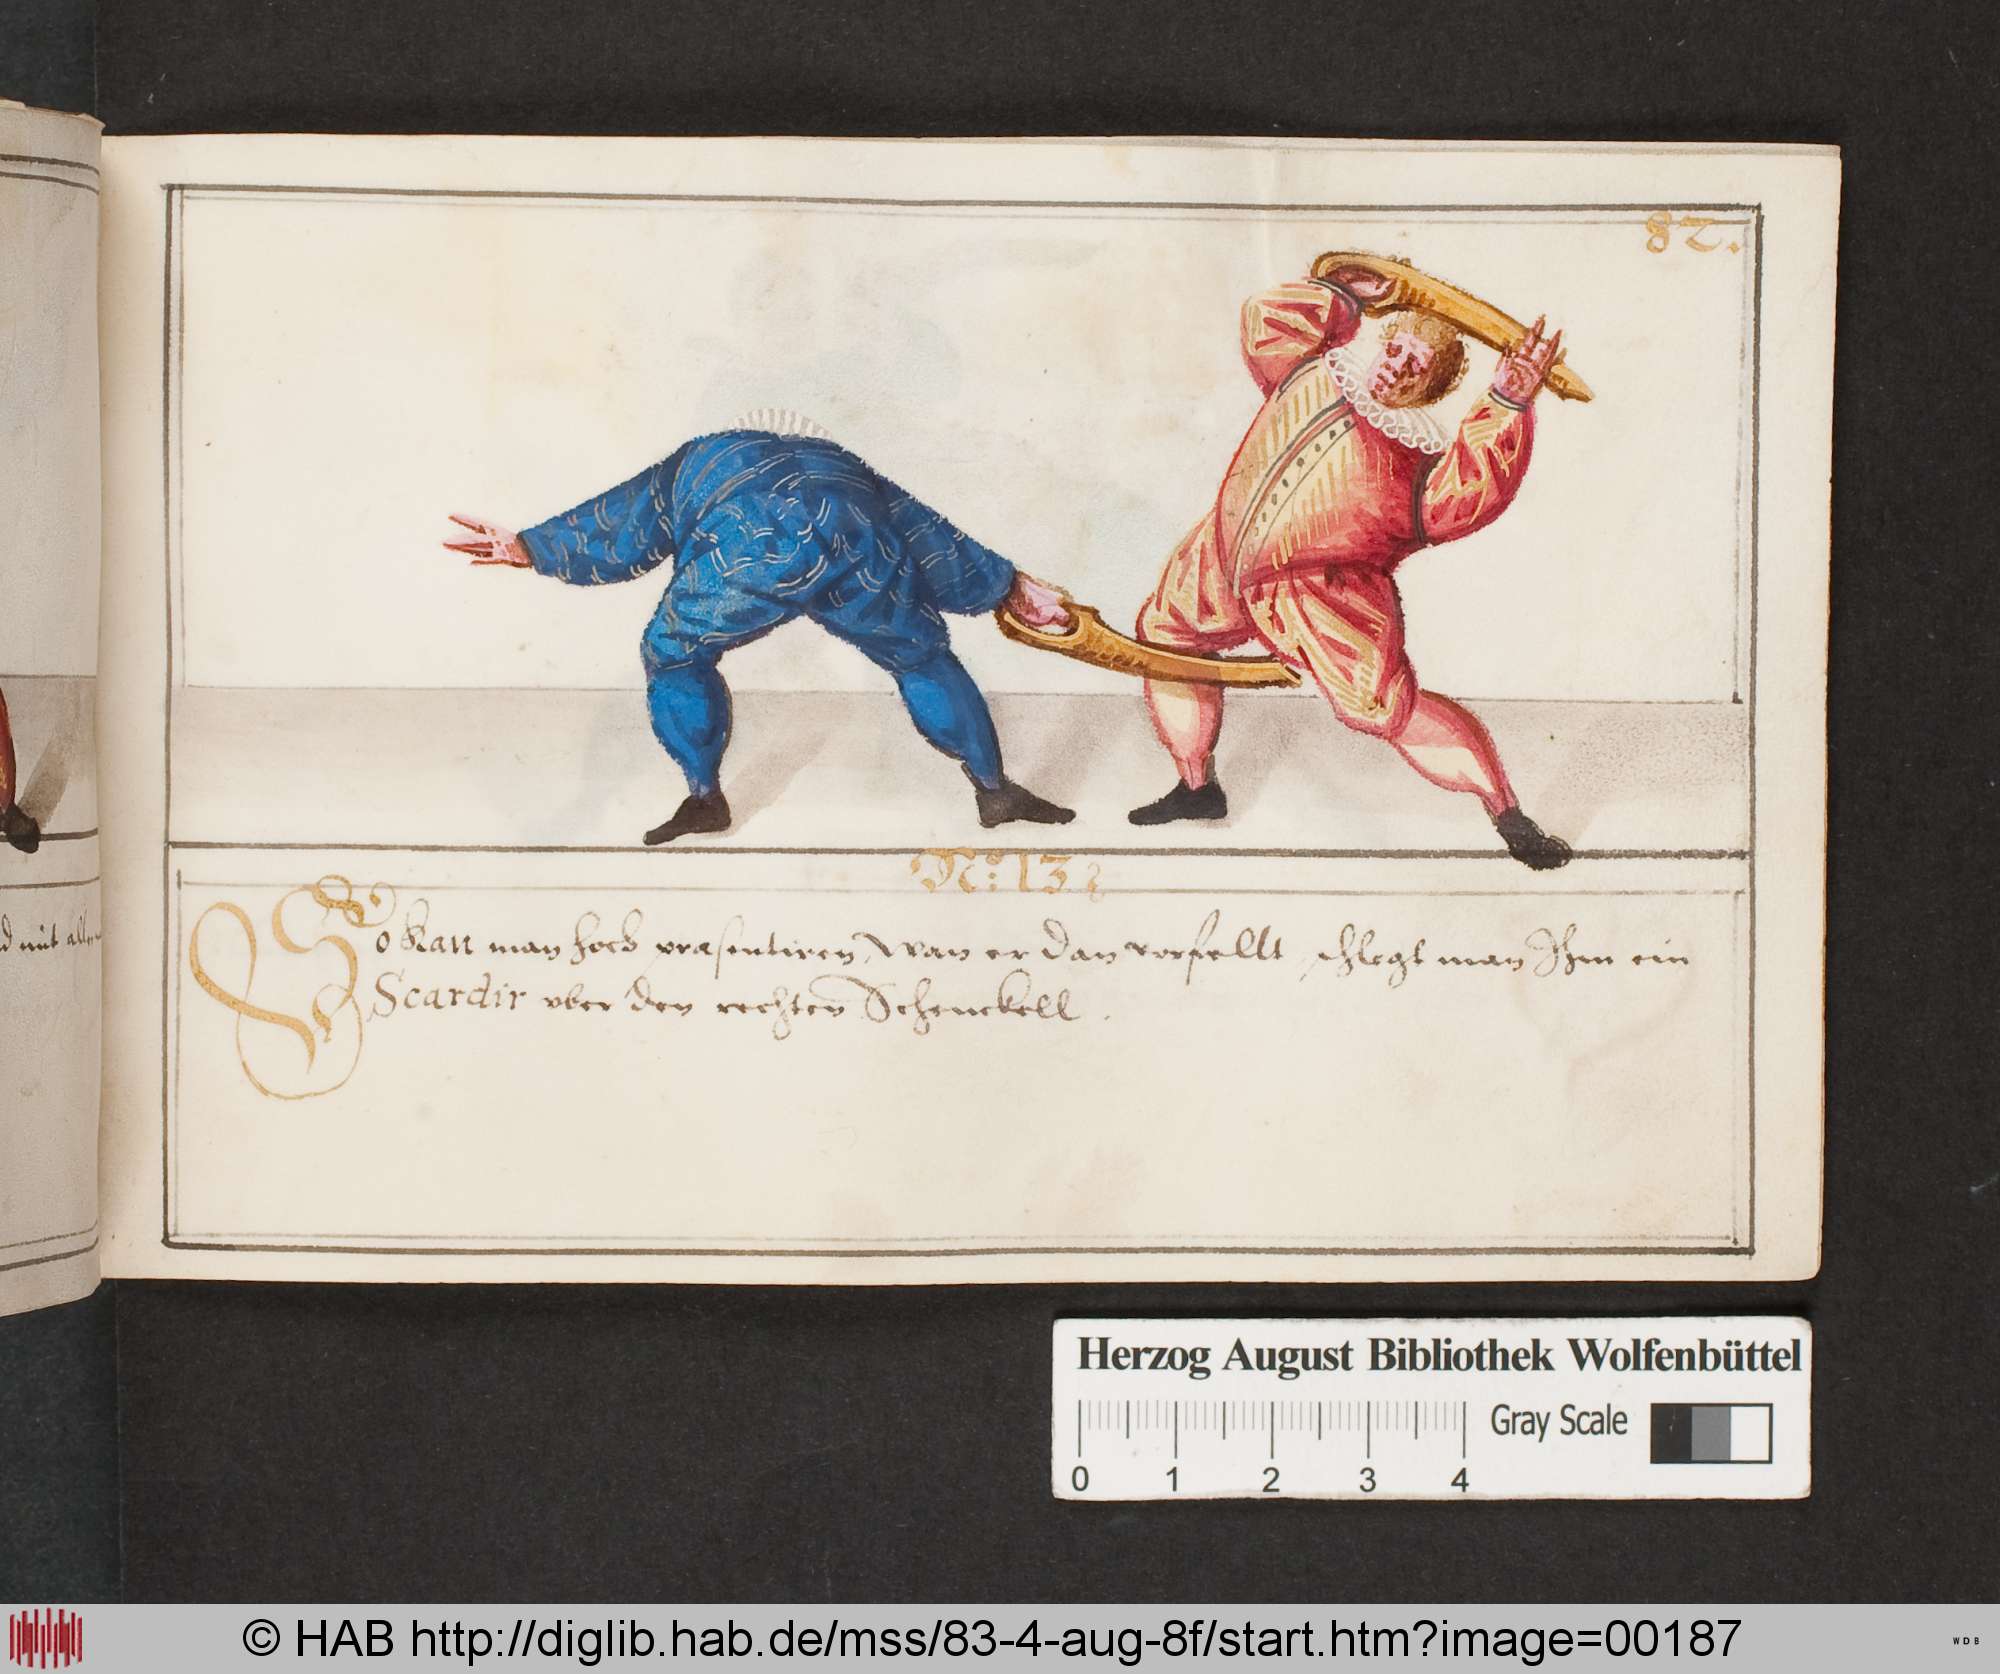 82.
d mit all
No: 13
So Kan man hoch præsentiren, wan er dan vorfellt, schlegt man Ihm ein
Scardir vber den rechten Schenckell.
Herzog August Bibliothek Wolfenbüttel
Gray Scale
0 1 2 3 4
© HAB http://diglib.hab.de/mss/83-4-aug-8f/start.htm?image=00187
WDB